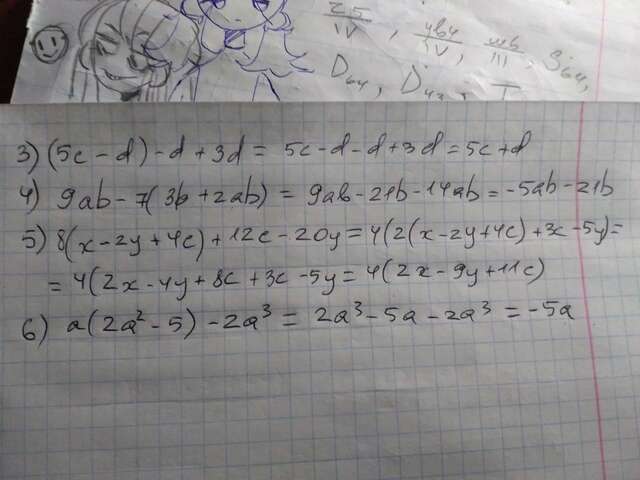 3) (5c - d) - d + 3d = 5c - d - d + 3d = 5c + d
4) 9ab - 7(3b + 2ab) = 9ab - 21b - 14ab = -5ab - 21b
5) 8(x - 2y + 4c) + 12c - 20y = 4(2(x - 2y + 4c) + 3c - 5y) =
= 4(2x - 4y + 8c + 3c - 5y = 4(2x - 9y + 11c)
6) a(2a² - 5) - 2a³ = 2a³ - 5a - 2a³ = -5a